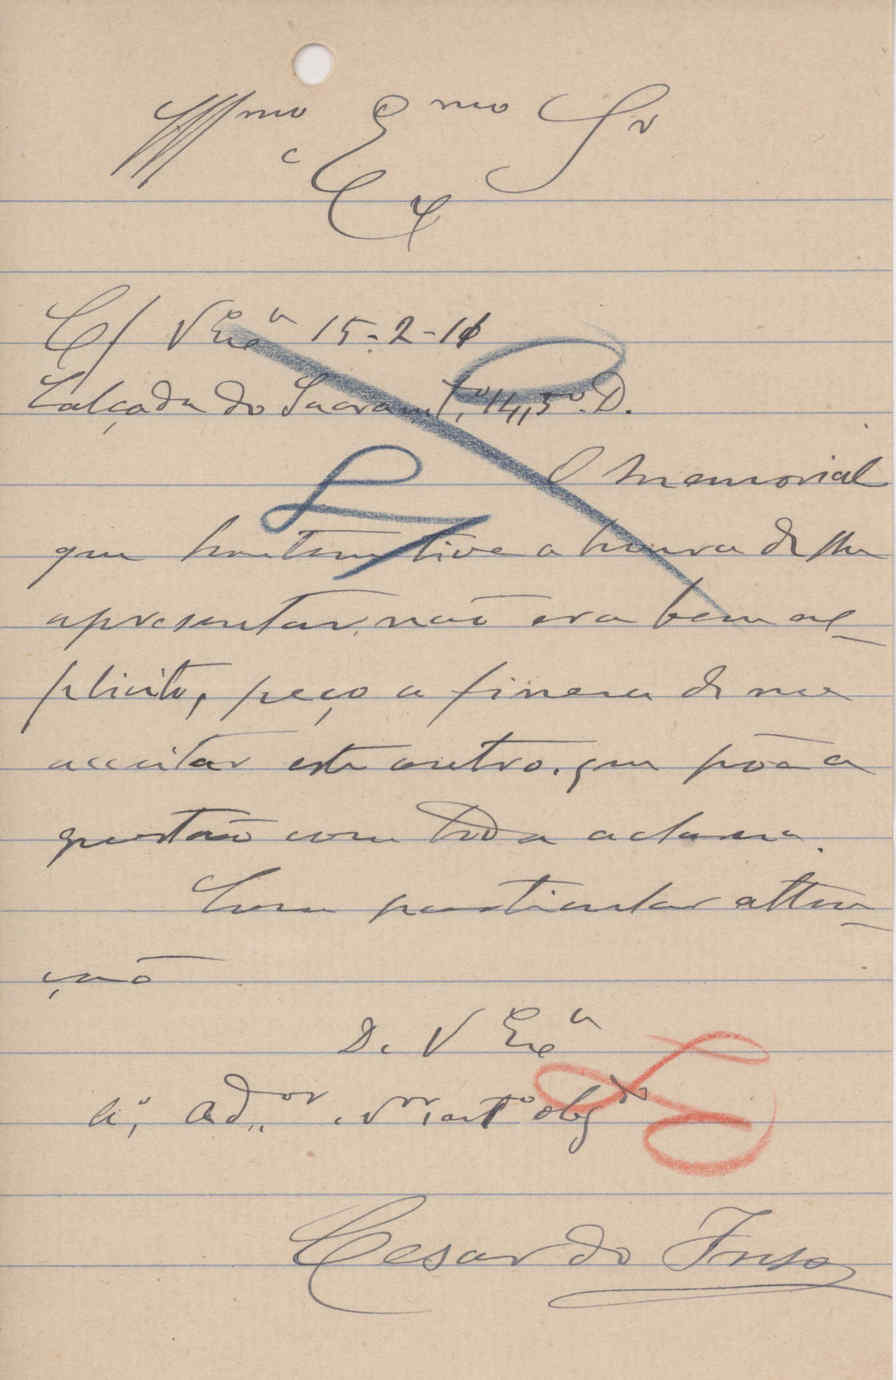 Illmo Exmo Sr
C/ V Exª 15-2-16
Calçada do Sacramtº, 14, 3º. D.
O memorial
que hontem tive a honra de lhe
apresentar, não era bem ex-
plicito, peço a fineza de me
acceitar este outro, que põe a
questão com toda a clareza.
Com particular atten-
ção
De V Exª
Ador obgdo
Cesar do